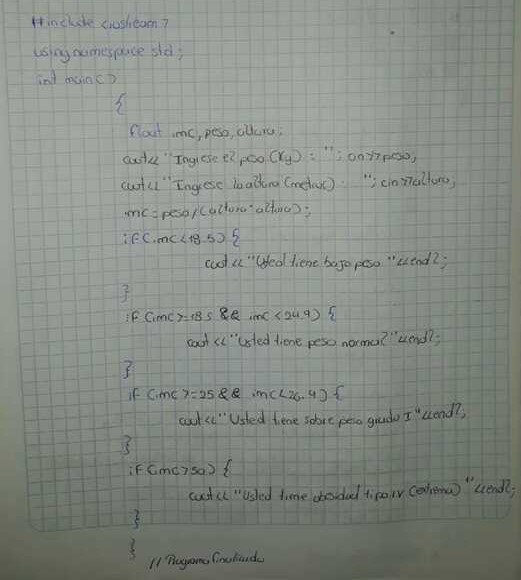 #include <iostream>
using namespace std;
int main()
{
float imc, peso, altura;
cout<<"Ingrese el peso (Kg) : "; cin>>peso;
cout<<"Ingrese la altura (metros) : "; cin>>altura;
imc = peso/(altura*altura);
if (imc<18.5) {
cout <<"Usted tiene bajo peso "<<endl;
}
if (imc>=18.5 && imc <24.9) {
cout <<"Usted tiene peso normal "<<endl;
}
if (imc>=25 && imc<26.9) {
cout <<"Usted tiene sobre peso grado I "<<endl;
}
if (imc>50) {
cout <<"Usted tiene obsidad tipo IV (extrema) "<<endl;
}
}
//Programa finalizado